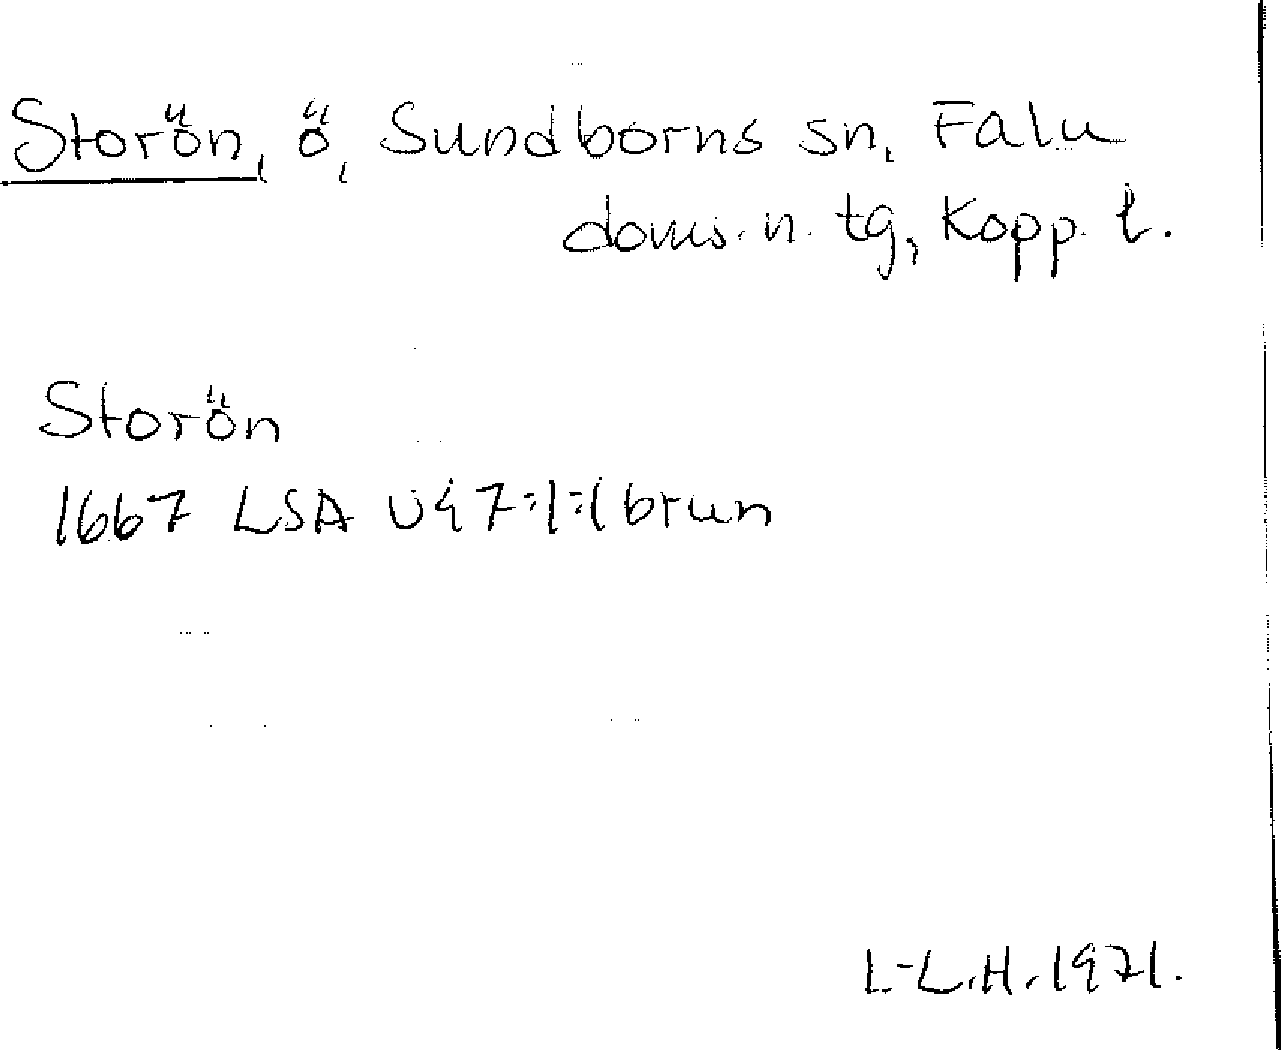 Storön, ö, Sundborns sn, Falu
doms. n. tg, Kopp. l.
Storön
1667 LSA U47:1:1 brun
L-L.H. 1971.